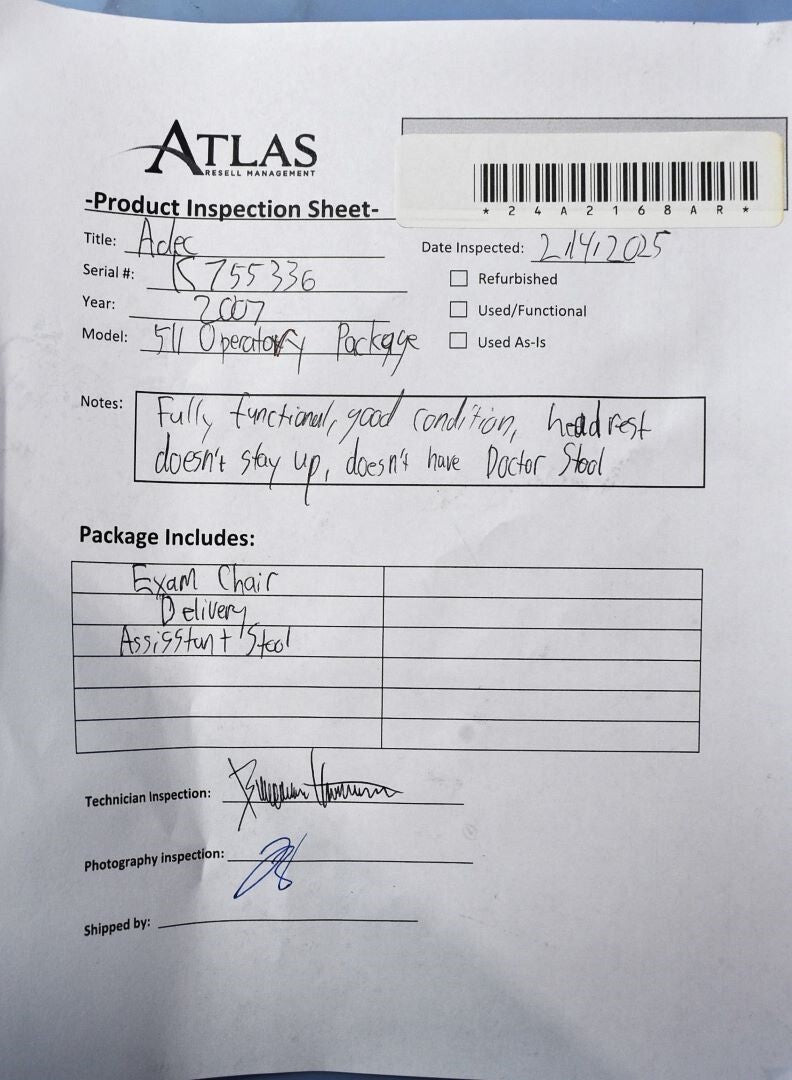 ATLAS
RESELL MANAGEMENT
* 2 4 A 2 1 6 8 A R *
-Product Inspection Sheet-
Title: Adec
Date Inspected: 2/14/2025
Serial #: K755336
Refurbished
Year: 2007
Used/Functional
Model: 511 Operatory Package
Used As-Is
Notes: Fully functional, good condition, headrest
doesn't stay up, doesn't have Doctor Stool
Package Includes:
Exam Chair
Delivery
Assisstant Stool
Technician Inspection:
Photography inspection:
Shipped by: